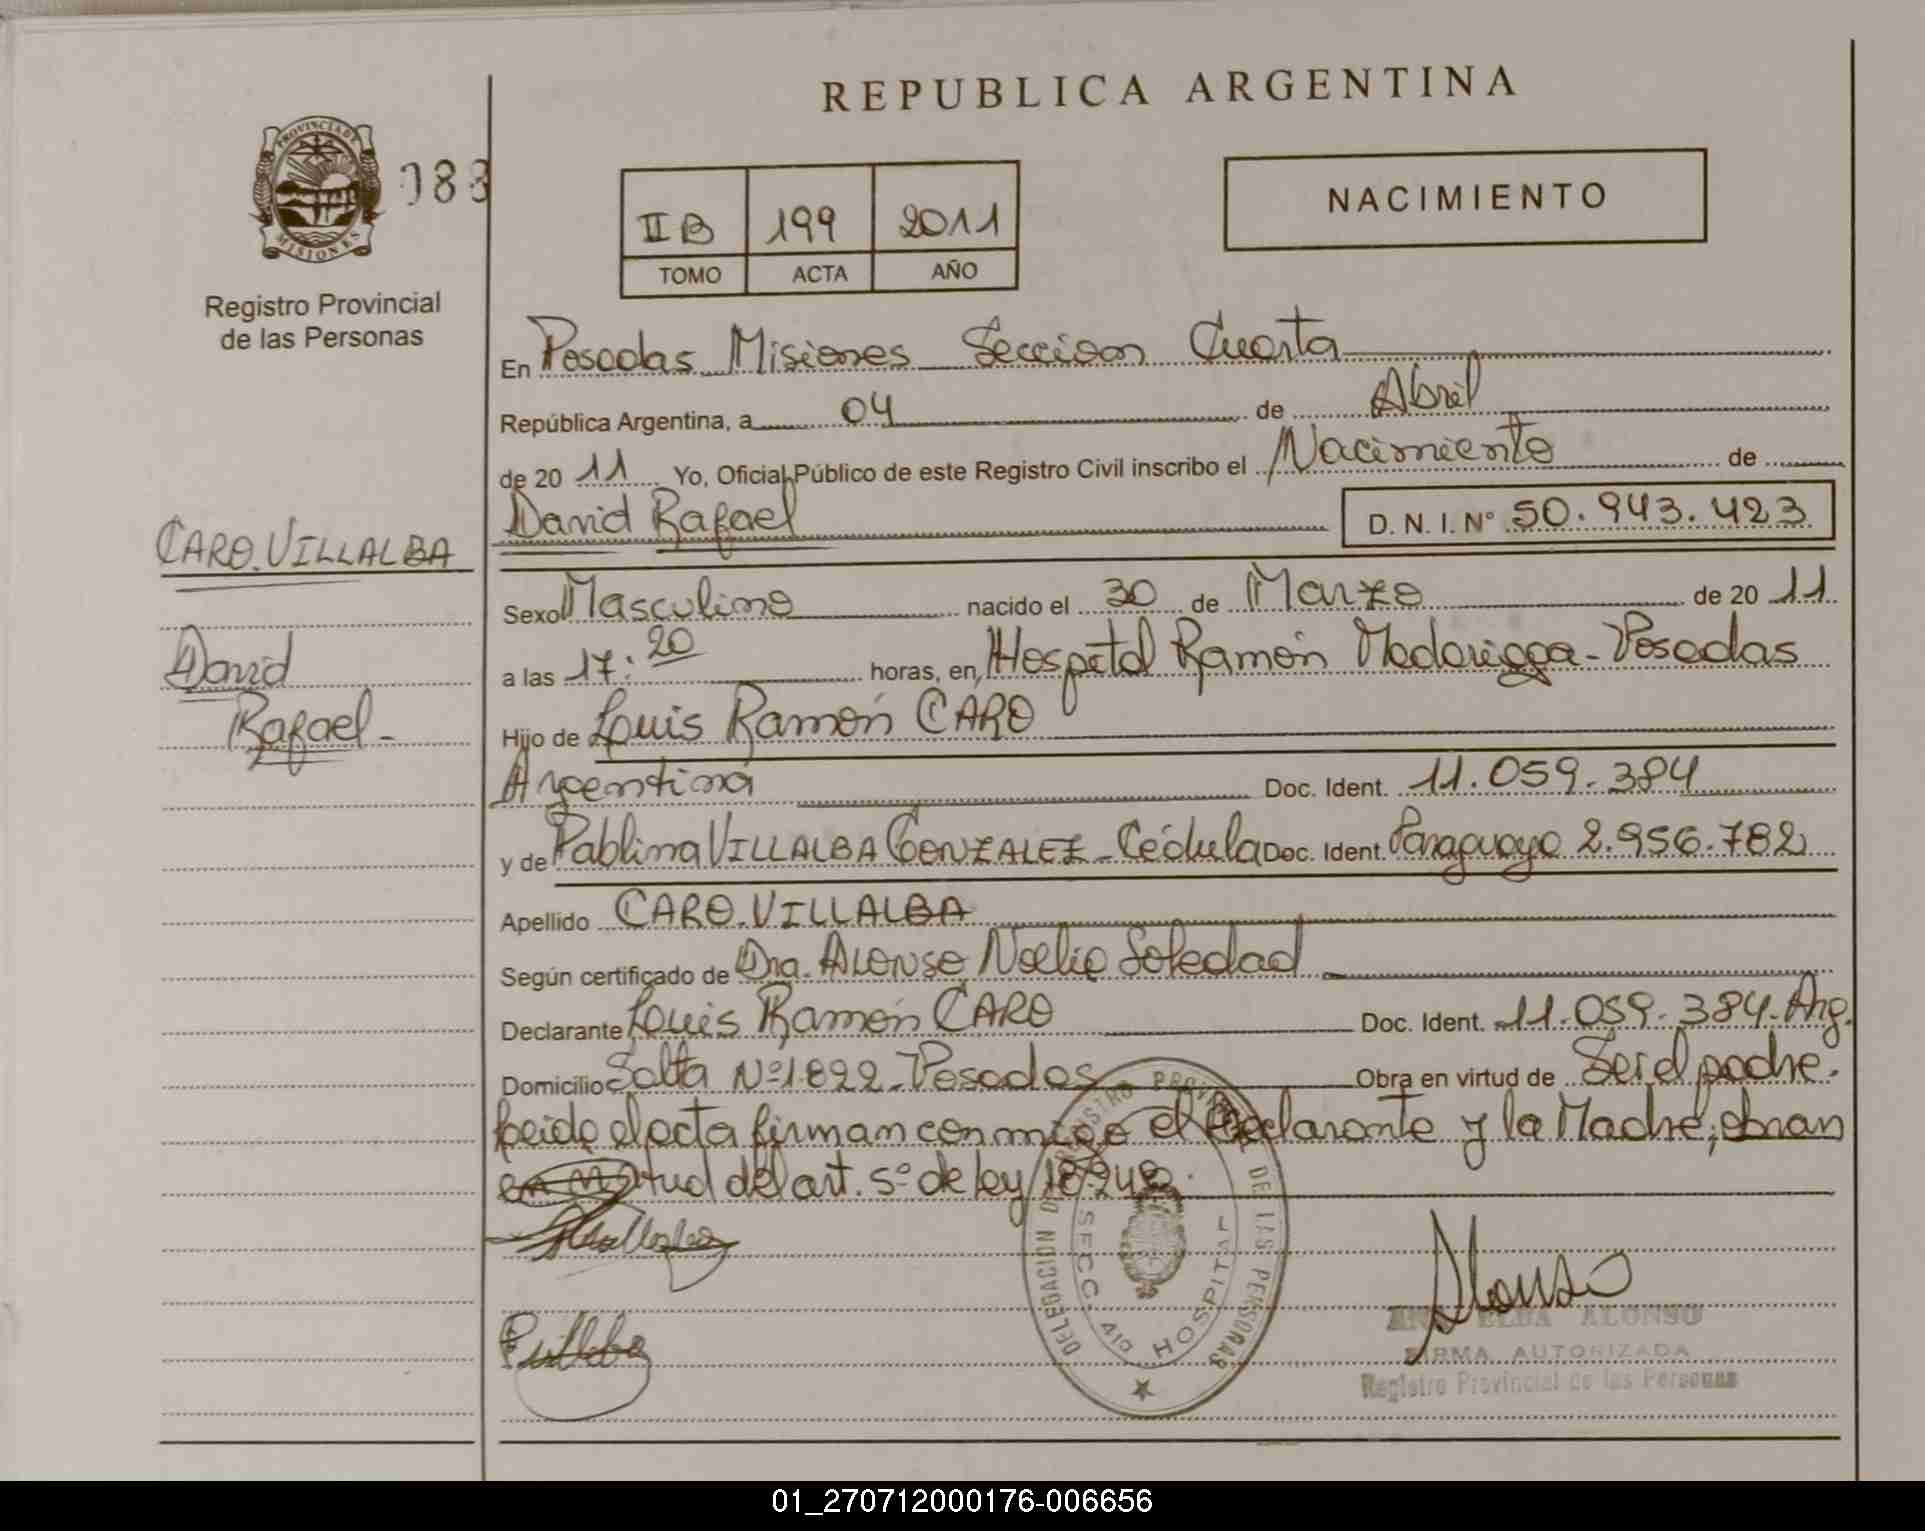 REPUBLICA ARGENTINA
PROVINCIA DE MISIONES
088
Registro Provincial
de las Personas
II B 199 2011
TOMO ACTA AÑO
NACIMIENTO
En Posadas Misiones Seccion Cuarta
República Argentina, a 04 de Abril
de 20 11 Yo, Oficial Público de este Registro Civil inscribo el Nacimiento de
David Rafael D. N. I. Nº 50.943.423
CARO.VILLALBA
David
Rafael-
Sexo Masculino nacido el 30 de Marzo de 20 11
a las 17:20 horas, en Hospital Ramón Madariaga-Posadas
Hijo de Luis Ramón CARO
Argentina Doc. Ident. 11.059.384
y de Pablina VILLALBA GONZALEZ-Cédula Doc. Ident. Paraguaya 2.956.782
Apellido CARO.VILLALBA
Según certificado de Dra. ALONSO Noelia Soledad
Declarante Luis Ramón CARO Doc. Ident. 11.059.384-Arg.
Domicilio Salta Nº1822-Posadas Obra en virtud de Ser el padre.
Leida el acta firman conmigo el Declarante y la Madre; obran
en virtud del art. 5º de ley 18.248.
DELEGACION DE REGISTRO PROVINCIAL DE LAS PERSONAS
SECC. 4ta HOSPITAL
Alonso
ANA ELBA ALONSO
FIRMA AUTORIZADA
Registro Provincial de las Personas
01_270712000176-006656